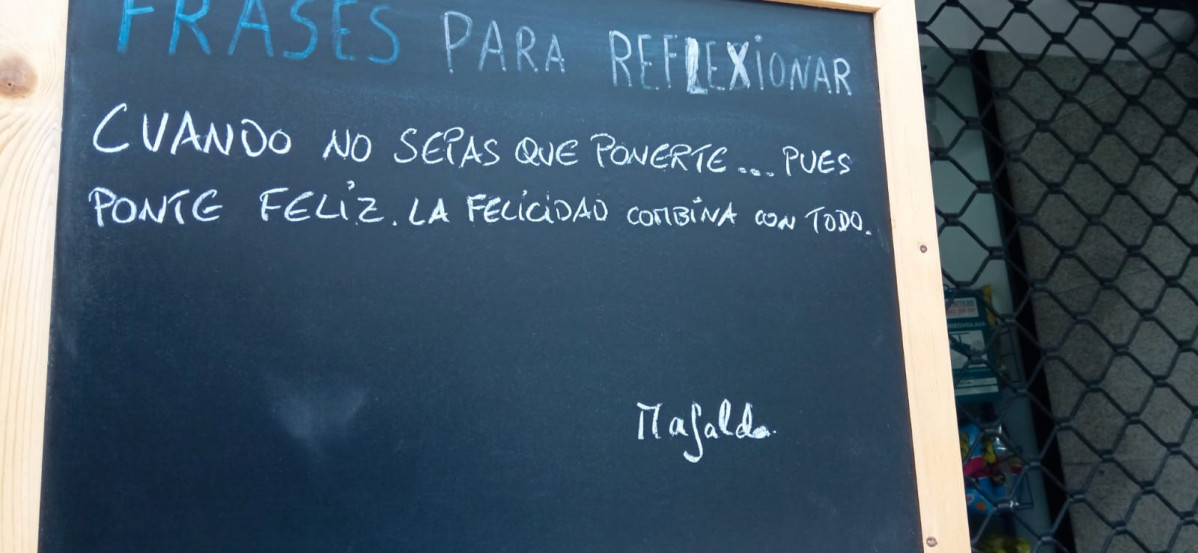 FRASES PARA REFLEXIONAR
CUANDO NO SEPAS QUE PONERTE... PUES
PONTE FELIZ. LA FELICIDAD COMBINA CON TODO.
Mafalda